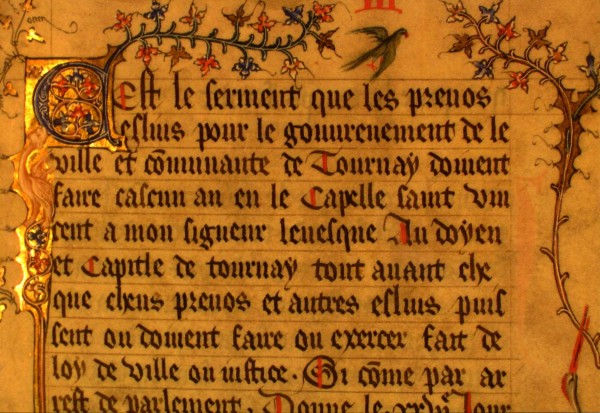 III
Cest le serment que les preuos
eslius pour le gouurenement de le
ville et cōmunaute de Tournay doiuent
faire cascun an en le Capelle saint vin
cent a mon signeur leuesque Au doyen
et Capitle de tournay tout auant che
que cheus preuos et autres eslius puis
sent ou doiuent faire ou exercer fait de
loy de ville ou iustice. Si cōme par ar
rest de parlement. Donne le xxviᵉ Iour